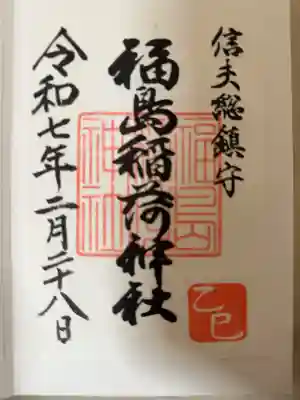 信夫総鎮守
福島稲荷神社
福島
神社
乙巳
令和七年二月二十八日